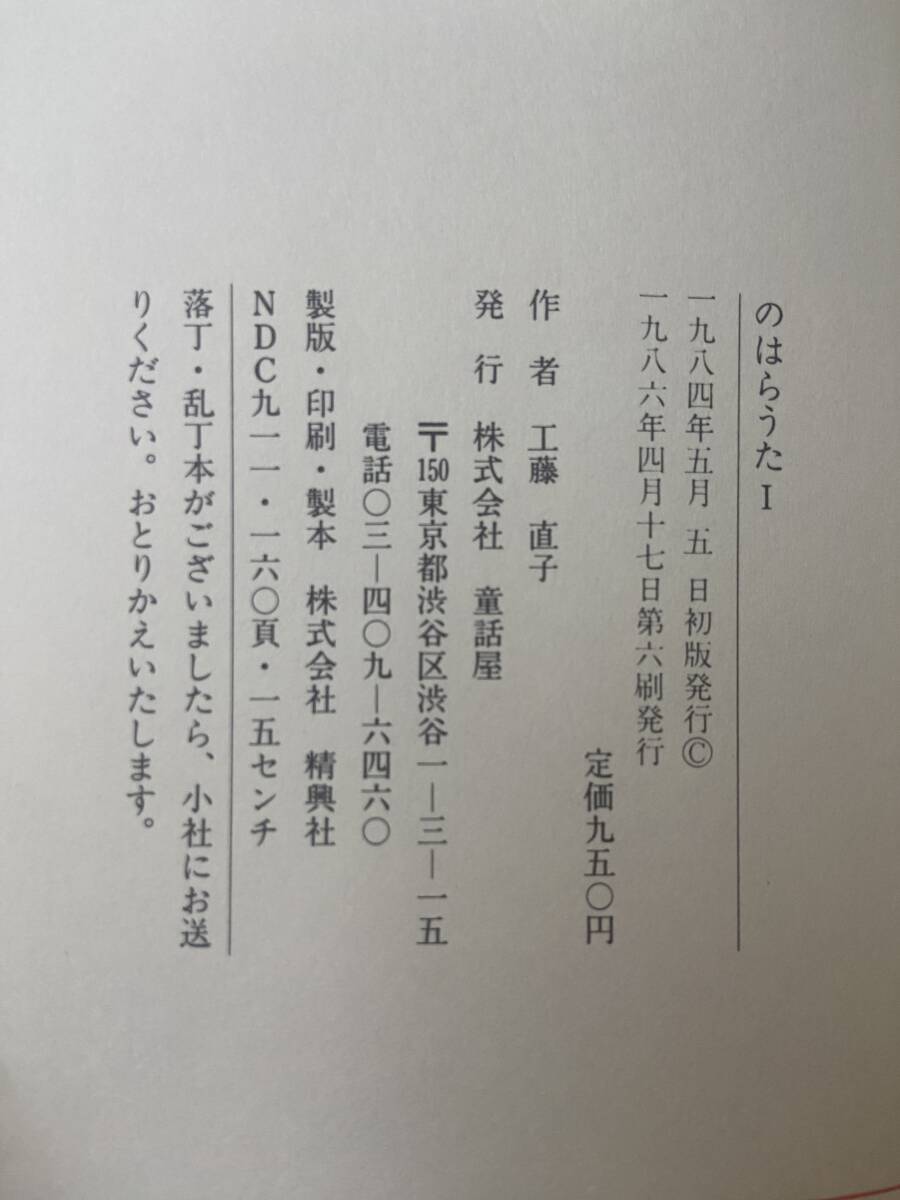 のはらうたⅠ
一九八四年五月 五 日初版発行©
一九八六年四月十七日第六刷発行
定価九五〇円
作 者 工藤 直子
発 行 株式会社 童話屋
〒150東京都渋谷区渋谷一―三―一五
電話〇三―四〇九―六四六〇
製版・印刷・製本 株式会社 精興社
NDC九一一・一六〇頁・一五センチ
落丁・乱丁本がございましたら、小社にお送
りください。おとりかえいたします。